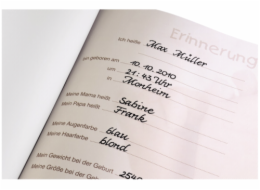 Erinnerung
Ich heiße Max Müller
Ich geboren am 10.10.2010
um 21:43 Uhr
in Monheim
Meine Mama heißt Sabine
Mein Papa heißt Frank
Meine Augenfarbe blau
Meine Haarfarbe blond
Mein Gewicht bei der Geburt 2540
Meine Größe bei der Geburt